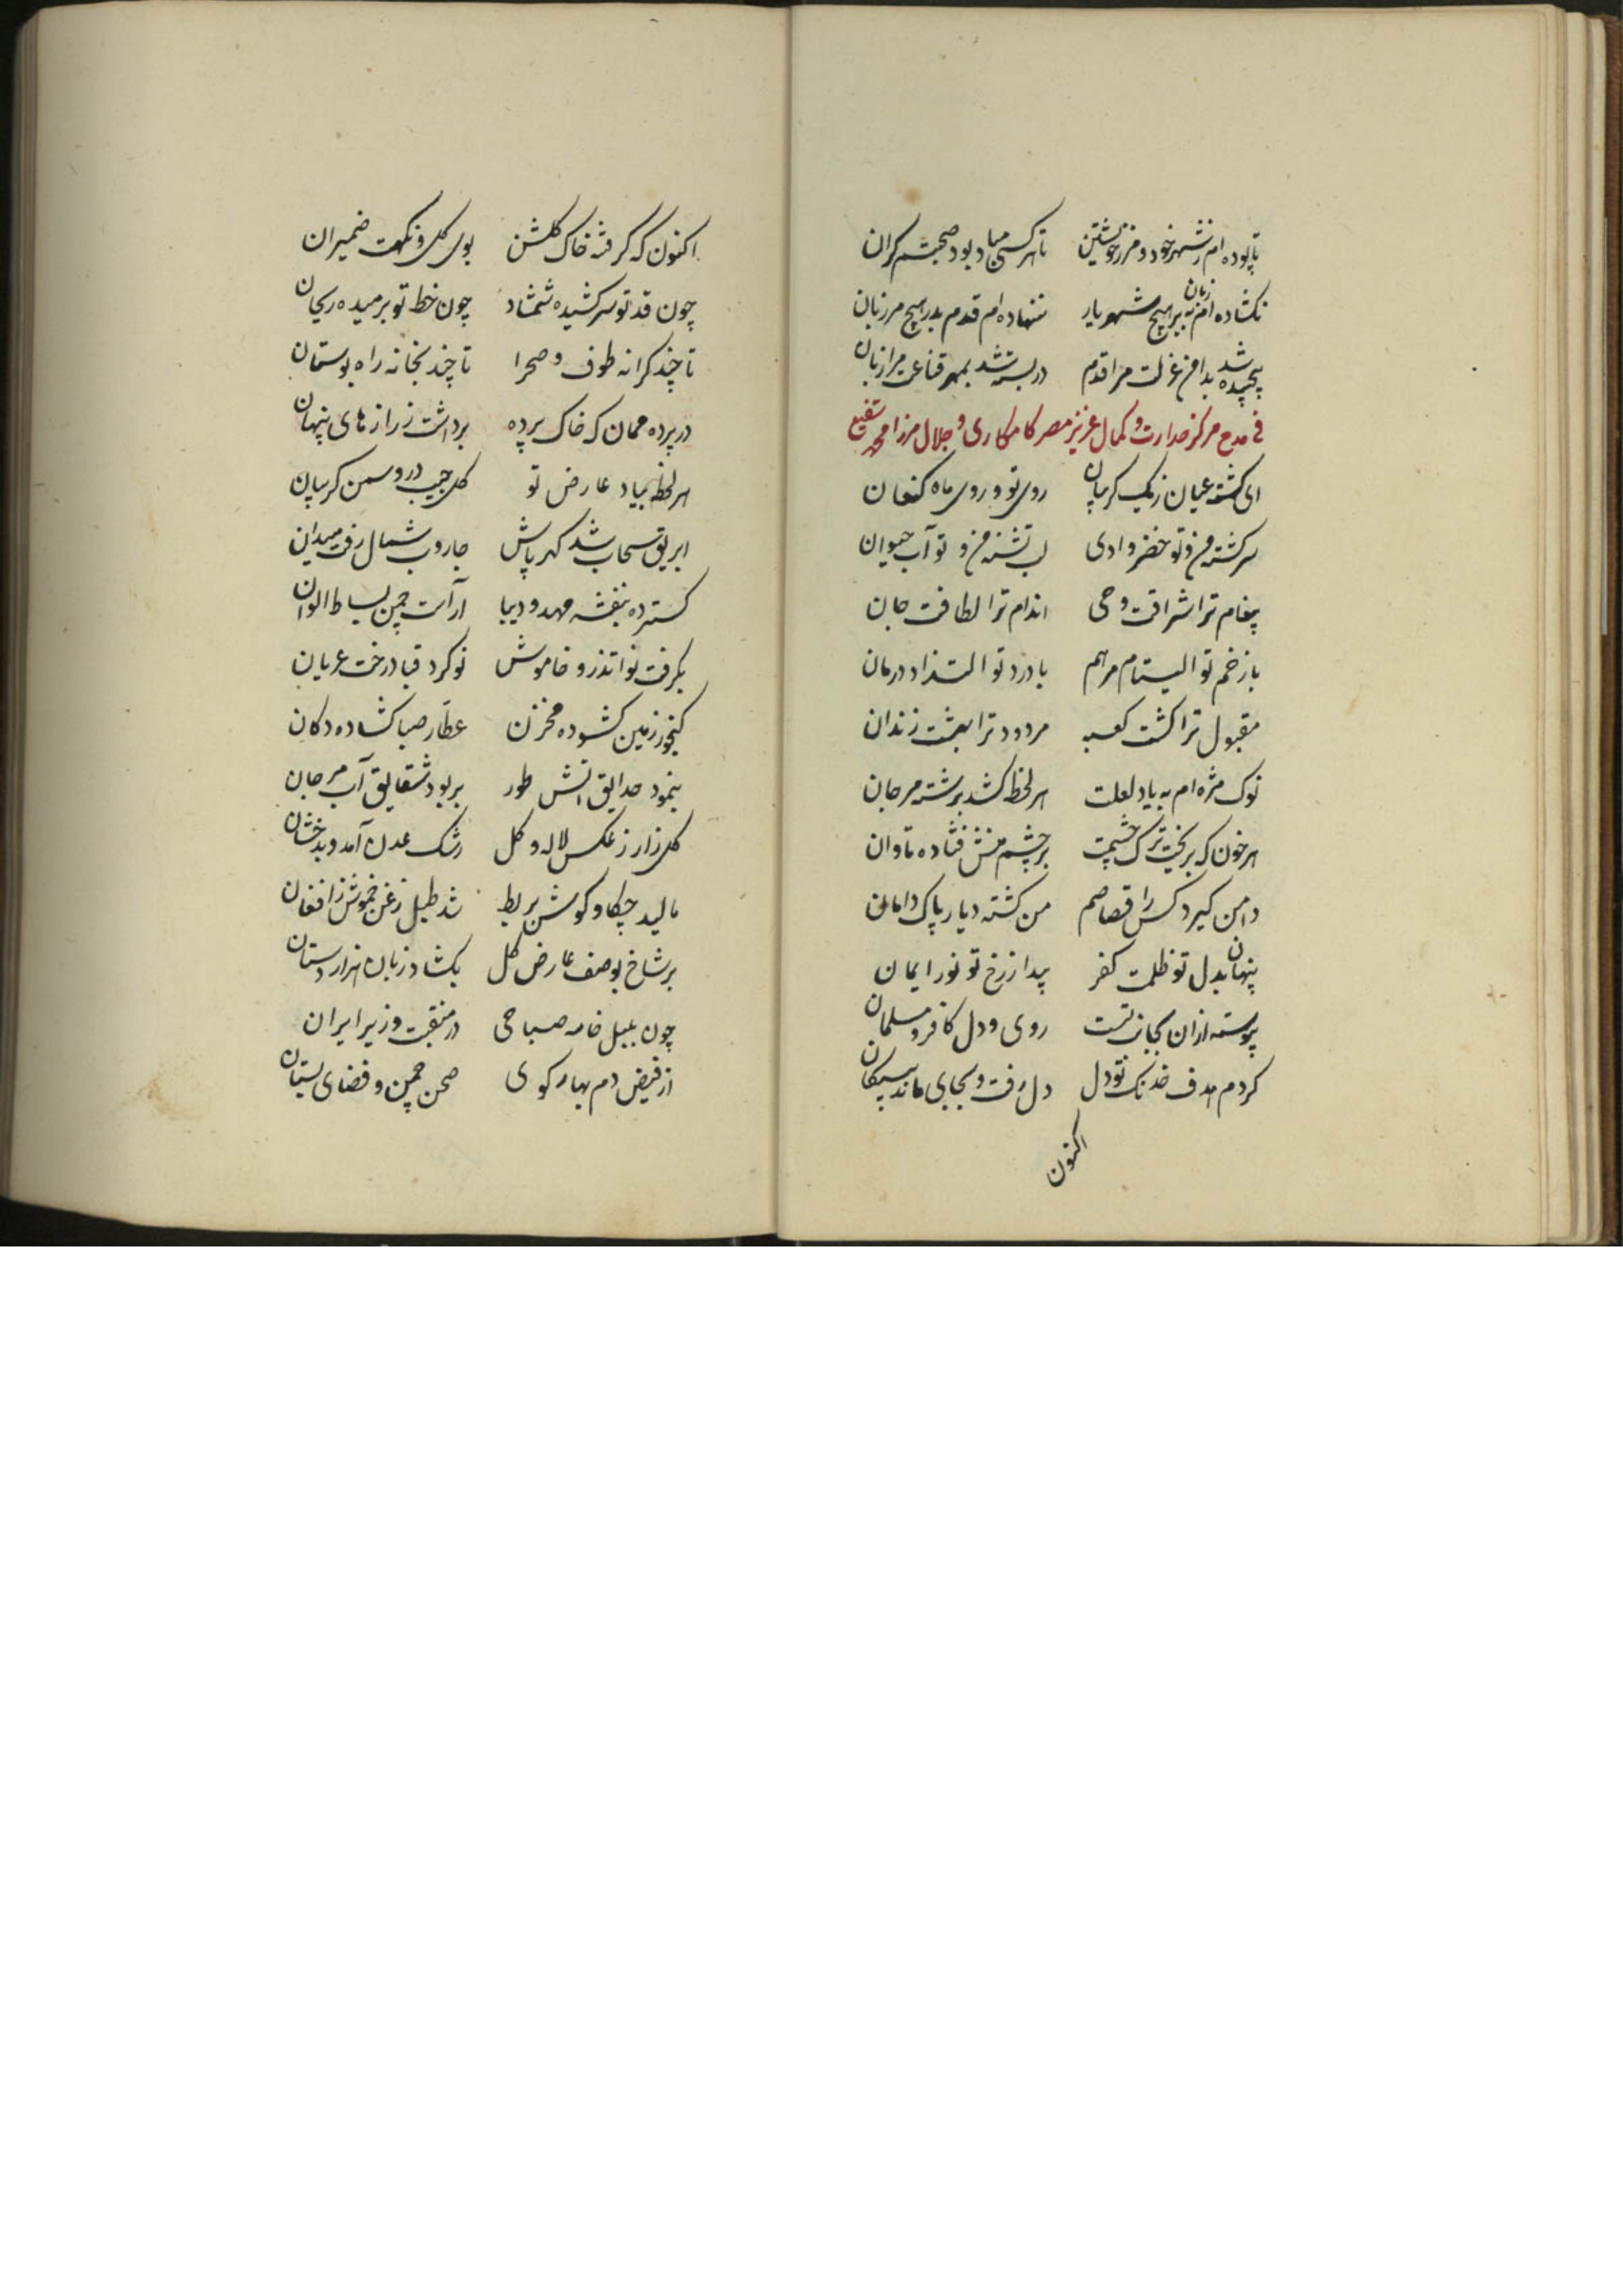 تا بوده‌ام ز شهر خود و مرز خویشتن تا هر کسی مباد بود صحبتم گران
نگشاده‌ام زبان به بر هیچ شهریار ننهاده‌ام قدم بدر هیچ مرزبان
پیچیده شد بدامن عزلت مرا قدم در بسته شد بمهر قناعت مرا زبان
فی مدح مرکز صدارت و کمال عزیز مصر کامکاری و جلال میرزا محمد شفیع
ای گشته عیان ز یک گریبان روی تو و روی ماه کنعان
سرگشته من و تو خضر وادی لب تشنه من و تو آب حیوان
پیغام ترا شرافت وحی اندام ترا لطافت جان
با زخم تو الیتام مرهم با درد تو التذاذ درمان
مقبول ترا کنشت کعبه مردود ترا بهشت زندان
نوک مژه‌ام به یاد لعلت هر لحظه کشد برشته مرجان
هر خون که بریخت ترک چشمت بر چشم منش فتاده تاوان
دامن گیرد کسرا قصاصم من کشته دیار پاک دامان
پنهان بدل تو ظلمت کفر پیدا ز رخ تو نور ایمان
پیوسته ازان بجانب تست روی و دل کافر و مسلمان
کردم هدف خدنگ تو دل دل رفت و بجای ماند پیکان
اکنون
اکنون که گرفته خاک گلشن بوی گل و نکهت ضمیران
چون قد تو سرکشیده شمشاد چون خط تو بردمیده ریحان
تا چند کرانه طوف صحرا تا چند بخانه راه بوستان
در پرده ممان که خاک پرده برداشت ز رازهای پنهان
هر لحظه بیاد عارض تو گل جیب درد و سمن گریبان
ابریق سحاب شد گهر پاش جاروب شمال رفت میدان
گسترده بنفشه مهد و دیبا آراست چمن بساط الوان
بگرفت نوا تذرو خاموش نو کرد قبا درخت عریان
گنجور زمین گشوده مخزن عطّار صبا گشاده دکان
بنمود حدایق آتش طور بربود شقایق آب مرجان
گلزار ز عکس لاله و گل رشک عدن آمد و بدخشان
مالید چکاو گوش بربط شد طبل زغن خموش ز افغان
بر شاخ بوصف عارض گل بگشاد زبان هزار دستان
چون بلبل خامه صباحی در منقبت وزیر ایران
از فیض دم بهار گوی صحن چمن و فضای بستان